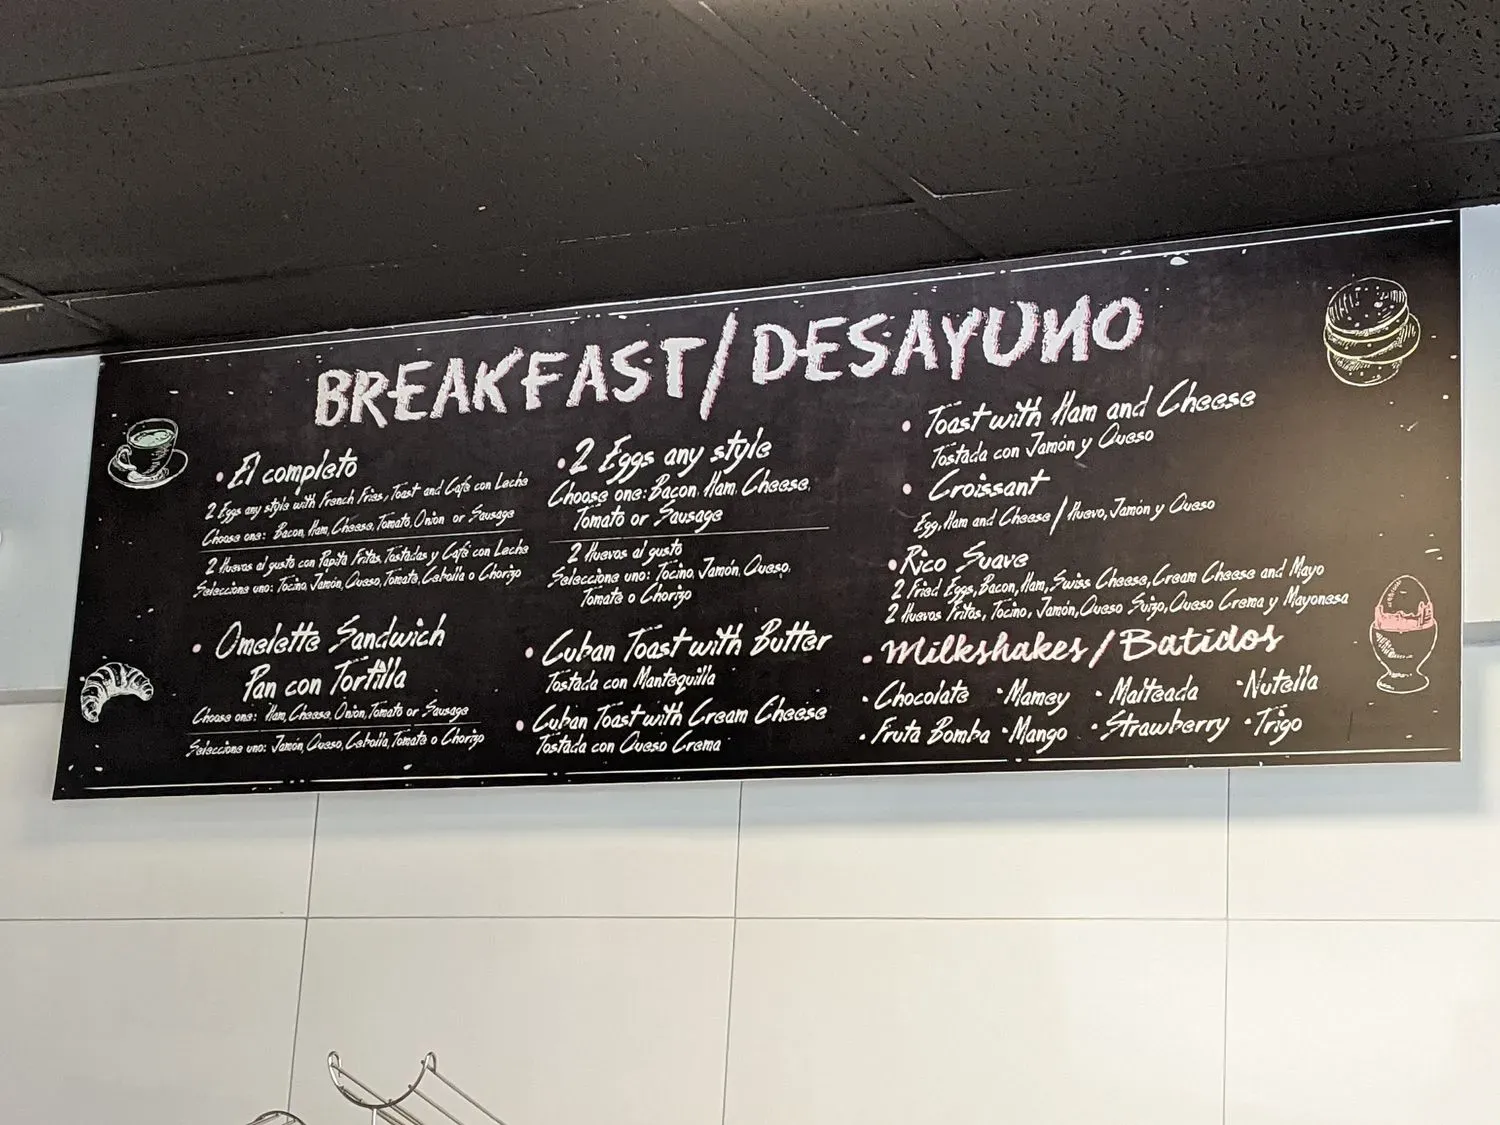 BREAKFAST/DESAYUNO
• El completo
2 Eggs any style with French Fries, Toast and Cafe con Leche
Choose one: Bacon, Ham, Cheese, Tomato, Onion or Sausage
2 Huevos al gusto con Papita Fritas, Tostadas y Café con Leche
Seleccione uno: Tocino, Jamón, Queso, Tomate, Cebolla o Chorizo
• Omelette Sandwich
Pan con Tortilla
Choose one: Ham, Cheese, Onion, Tomato or Sausage
Seleccione uno: Jamón, Queso, Cebolla, Tomate o Chorizo
• 2 Eggs any style
Choose one: Bacon, Ham, Cheese,
Tomato or Sausage
2 Huevos al gusto
Seleccione uno: Tocino, Jamón, Queso,
Tomate o Chorizo
• Cuban Toast with Butter
Tostada con Mantequilla
• Cuban Toast with Cream Cheese
Tostada con Queso Crema
• Toast with Ham and Cheese
Tostada con Jamón y Queso
• Croissant
Egg, Ham and Cheese / Huevo, Jamón y Queso
• Rico Suave
2 Fried Eggs, Bacon, Ham, Swiss Cheese, Cream Cheese and Mayo
2 Huevos Fritos, Tocino, Jamón, Queso Suizo, Queso Crema y Mayonesa
• Milkshakes / Batidos
• Chocolate • Mamey • Malteada • Nutella
• Fruta Bomba • Mango • Strawberry • Trigo